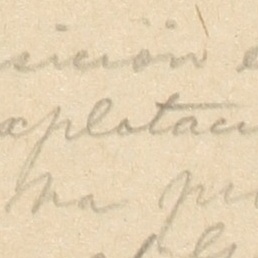 sición e
xplotaci
ha pr